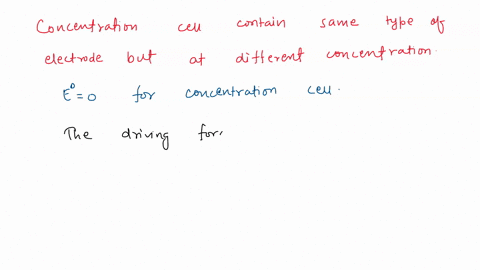 Concentration cell contain same type of
electrode but at different concentration.
E⁰=0 for concentration cell.
The driving for